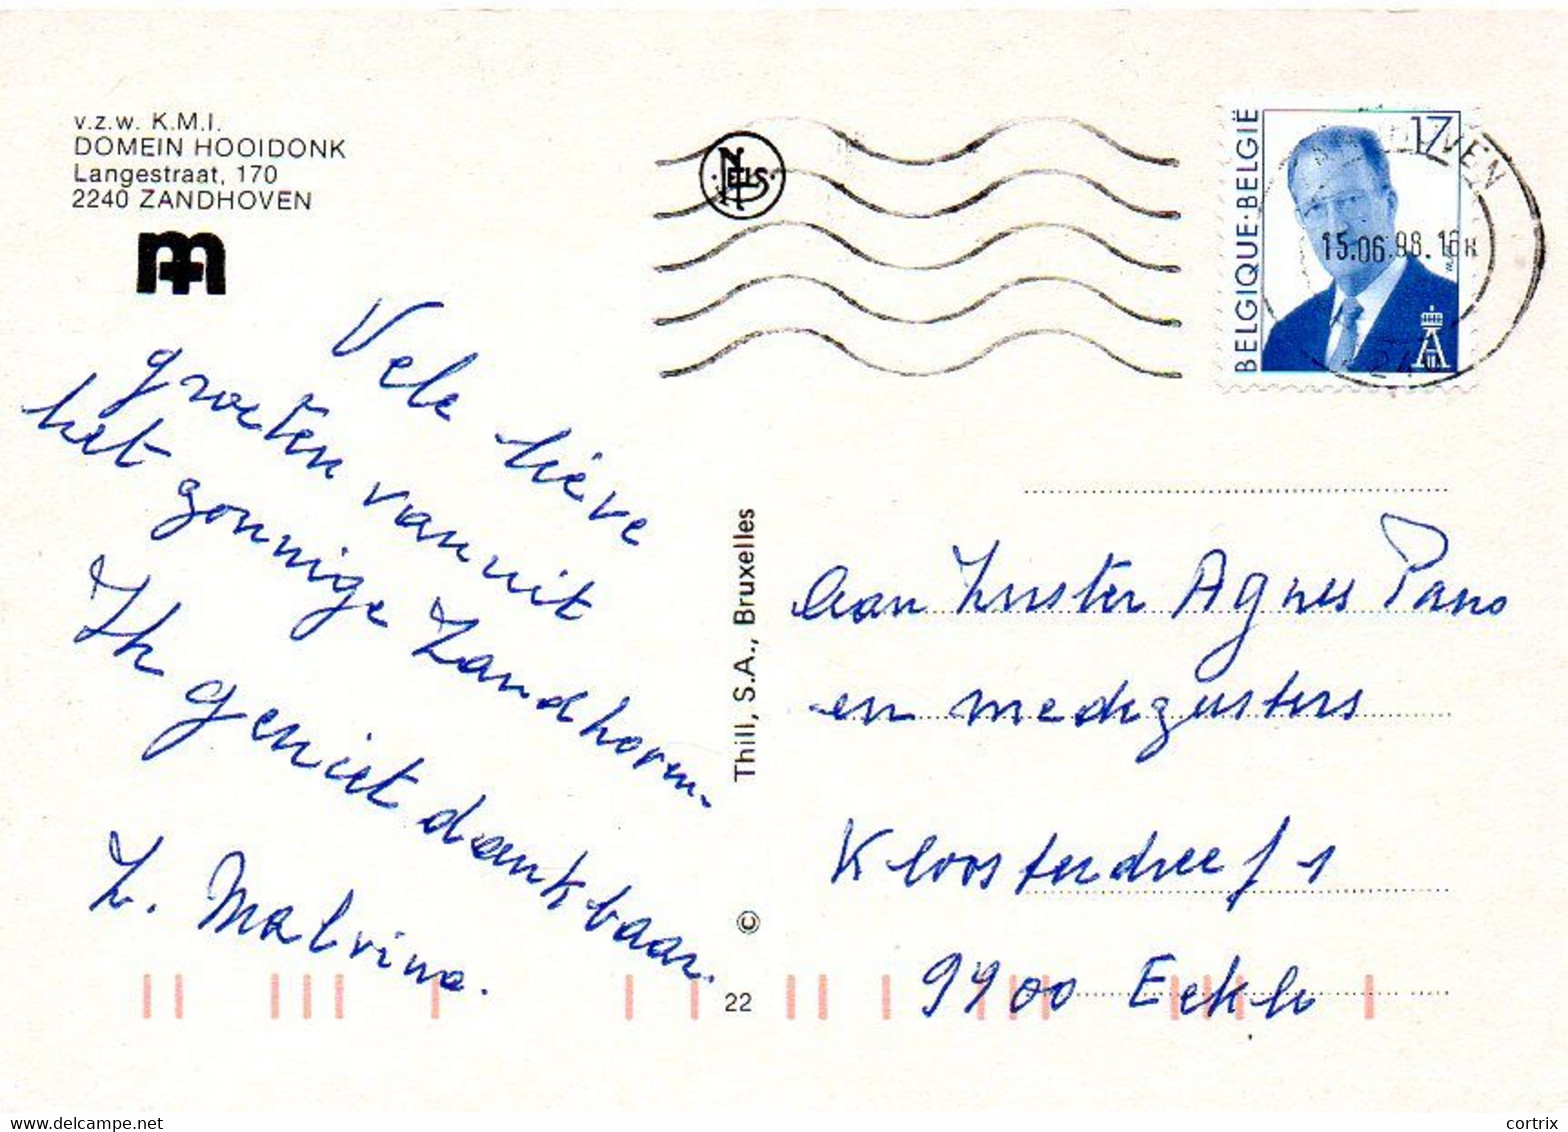 v.z.w. K.M.I.
DOMEIN HOOIDONK
Langestraat, 170
2240 ZANDHOVEN
NELS
BELGIQUE·BELGIË
17
15.06.98.16H
Vele lieve
groeten vanuit
het zonnige Zandhoven.
Ik geniet dankbaar.
Z. Malvina.
Thill, S.A., Bruxelles
©
22
Aan Zuster Agnes
en medezusters
Kloosterdreef 1
9900 Eeklo
www.delcampe.net
cortrix